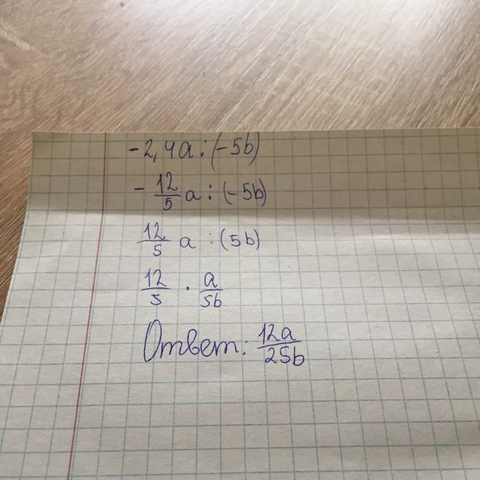 -2,4a:(-5b)
-12/5 a:(-5b)
12/5 a:(5b)
12/5 · a/5b
Ответ: 12a/25b